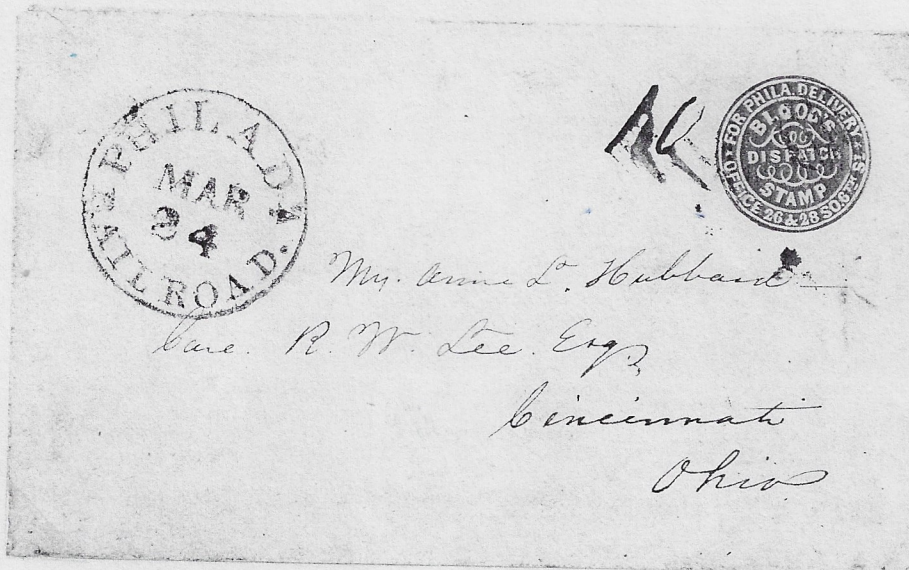 PHILADA
RAILROAD.
MAR
24
10
FOR PHILA. DELIVERY
BLOOD'S
DISPATCH
STAMP
OFFICE 26 & 28 SO. 6TH ST
L. Hubbard
Care. R. W. Lee. Esq
Cincinnati
Ohio